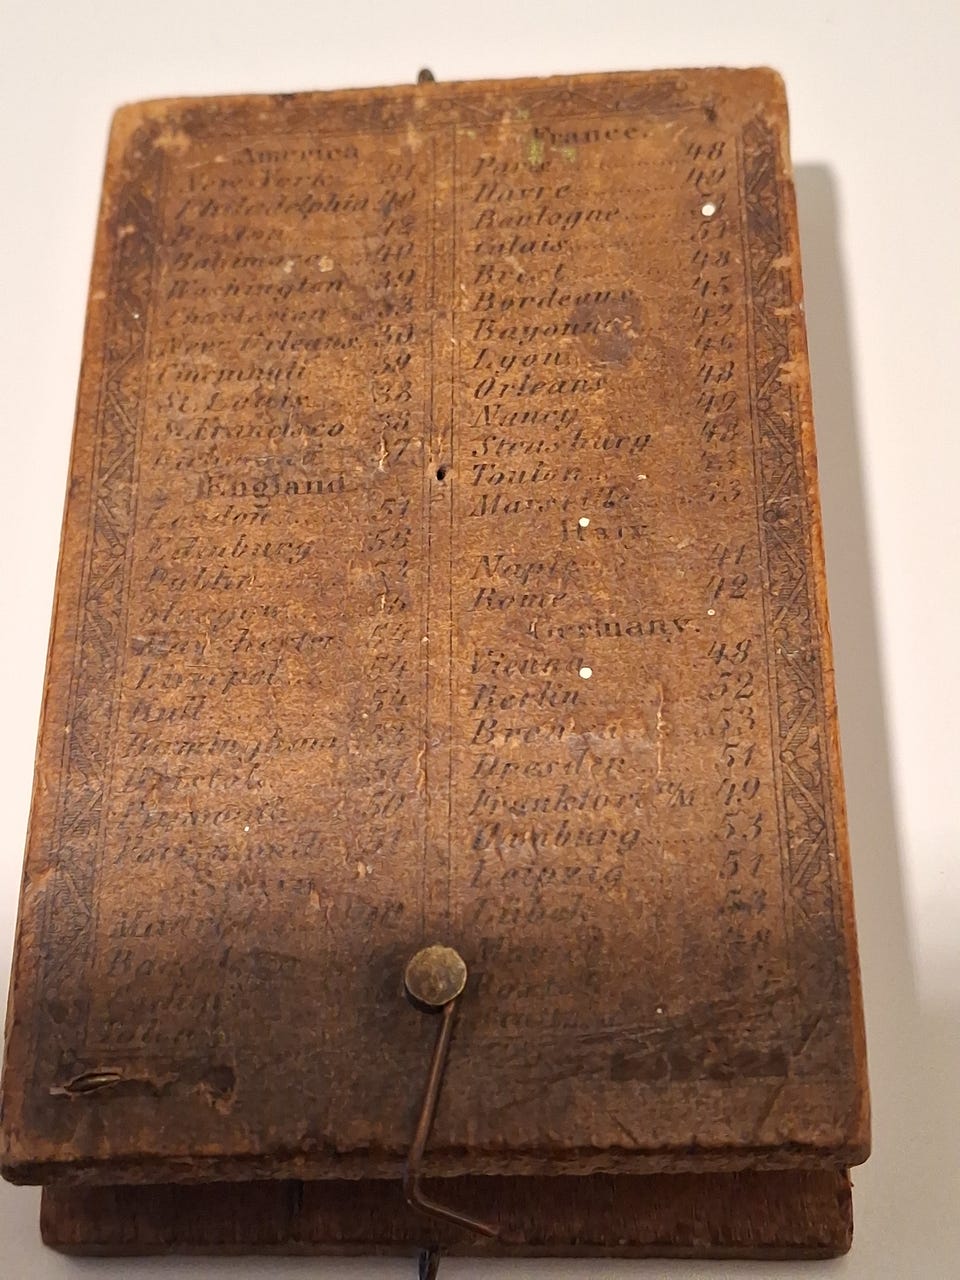 America
New York 41
Philadelphia 40
Boston 42
Baltimore 40
Washington 39
Charleston 33
New Orleans 30
Cincinnati 39
St. Louis 38
St. Francisco 38
England
London 51
Edinburg 56
Dublin
Glasgow
Manchester 54
Liverpol 54
Hull 54
Birmingham
Bristol 51
50
51
Madrid
France.
Paris 48
Havre 49
Boulogne 51
Calais 51
Brest 48
Bordeaux 45
Bayonne 43
Lyon 46
Orleans 48
Nancy 49
Strasburg 48
Toulon 43
Marseille 53
Italy
Naple 41
Rome 42
Germany.
Vienna 48
Berlin 52
Bremen 53
Dresden 51
Frankfort a/M 49
Hamburg 53
Leipzig 51
Lübek 53